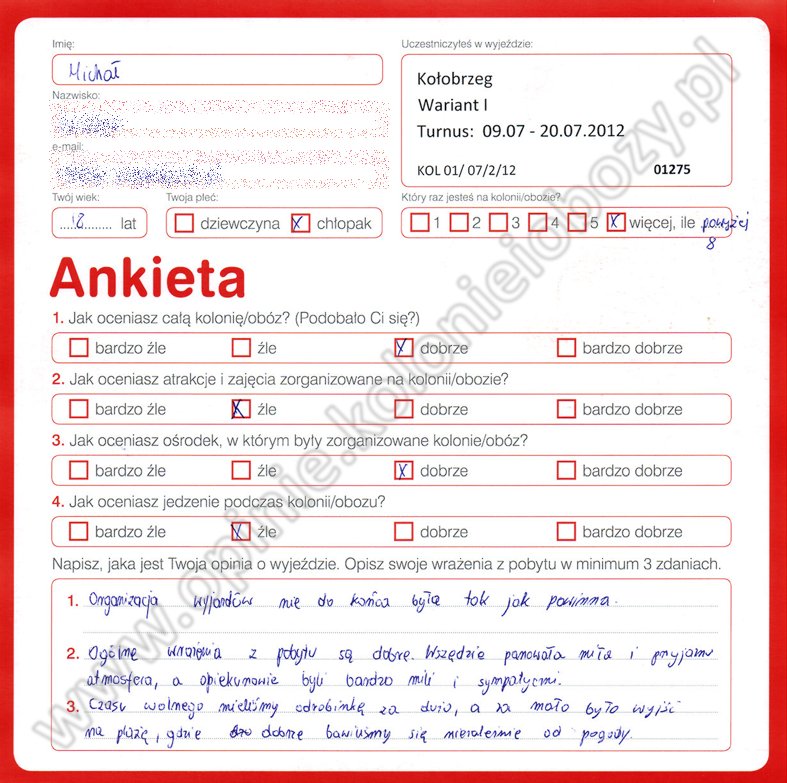 Imię:
Michał
Uczestniczyłeś w wyjeździe:
Kołobrzeg
Wariant I
Turnus: 09.07 - 20.07.2012
KOL 01/ 07/2/12 01275
Nazwisko:
e-mail:
Twój wiek: Twoja płeć: Który raz jesteś na kolonii/obozie?
18 lat dziewczyna X chłopak 1 2 3 4 5 X więcej, ile powyżej
8
Ankieta
1. Jak oceniasz całą kolonię/obóz? (Podobało Ci się?)
bardzo źle źle X dobrze bardzo dobrze
2. Jak oceniasz atrakcje i zajęcia zorganizowane na kolonii/obozie?
bardzo źle X źle dobrze bardzo dobrze
3. Jak oceniasz ośrodek, w którym były zorganizowane kolonie/obóz?
bardzo źle źle X dobrze bardzo dobrze
4. Jak oceniasz jedzenie podczas kolonii/obozu?
bardzo źle X źle dobrze bardzo dobrze
Napisz, jaka jest Twoja opinia o wyjeździe. Opisz swoje wrażenia z pobytu w minimum 3 zdaniach.
1. Organizacja wyjazdów nie do końca była tak jak powinna.
2. Ogólne wrażenia z pobytu są dobre. Wszędzie panowała miła i przyjazna
atmosfera, a opiekunowie byli bardzo mili i sympatyczni.
3. Czasu wolnego mieliśmy odrobinkę za dużo, a za mało było wyjść
na plażę, gdzie dobrze bawiliśmy się niezależnie od pogody.
www.opinie.kolonieiobozy.pl